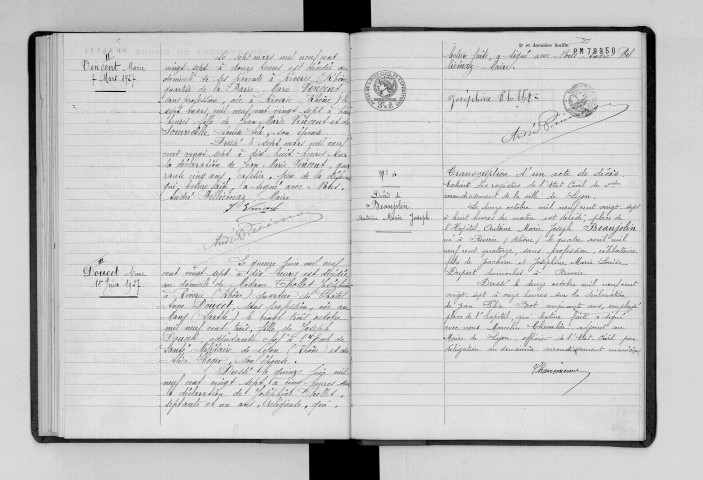 Vencent Marie
7 Mars 1927
Le sept mars mil neuf cent
vingt sept à douze heures est décédée au
domicile de ses parents à Riverie (Rhône)
quartier de la Barre, Marie Vincent,
sans profession, née à Riverie (Rhône) le
sept mars mil neuf cent vingt sept à
heures fille de Jean Marie Vincent et de
son épouse
Dressé le sept mars mil neuf
cent vingt sept à dix huit heures sur
la déclaration de Jean Marie Vincent, qua
rante cinq ans, père de la défunte
qui, lecture faite, a signé avec Nous,
André Maire
J. Vincent
Doucet Anne
15 Juin 1927
Le quinze Juin mil neuf
cent vingt sept à dix heures est décédée
au domicile de Madame Chollet Joséphine
à Riverie (Rhône) quartier du
Anne Doucet, sans profession, née au
Mans (Sarthe) le octobre
mil neuf cent trois, fille de Joseph
Doucet adjudant chef à l'École de
Santé Militaire de Lyon (Rhône) et de
son épouse.
Dressé le quinze Juin mil
neuf cent vingt sept, à cinq heures sur
la déclaration de Joséphine Chollet,
septante et un ans, religieuse, qui,
2e et dernière feuille
PM 78950
lecture faite, a signé avec Nous, André
Maire.
Joséphine Chollet
N° 4
Décès de
Beaujolin
Antoine Marie Joseph
Transcription d'un acte de décès
extrait des registres de l'Etat Civil du
arrondissement de la ville de Lyon.
Le douze octobre mil neuf cent vingt sept
à huit heures du matin est décédé, place de
l'Hopital, Antoine Marie Joseph Beaujolin
né à Riverie, Rhône, le quatre avril mil
neuf cent quatorze, sans profession, célibataire
fils de Joachim et Joséphine Marie Louise
Dupont domiciliés à Riverie
Dressé le douze octobre mil neuf cent
vingt sept à onze heures sur la déclaration
de Jean cinquante ans, employé
place de l'hopital, qui lecture faite a signé
avec nous adjoint au
Maire de Lyon, officier de l'Etat Civil par
délégation du deuxième arrondissement municipal